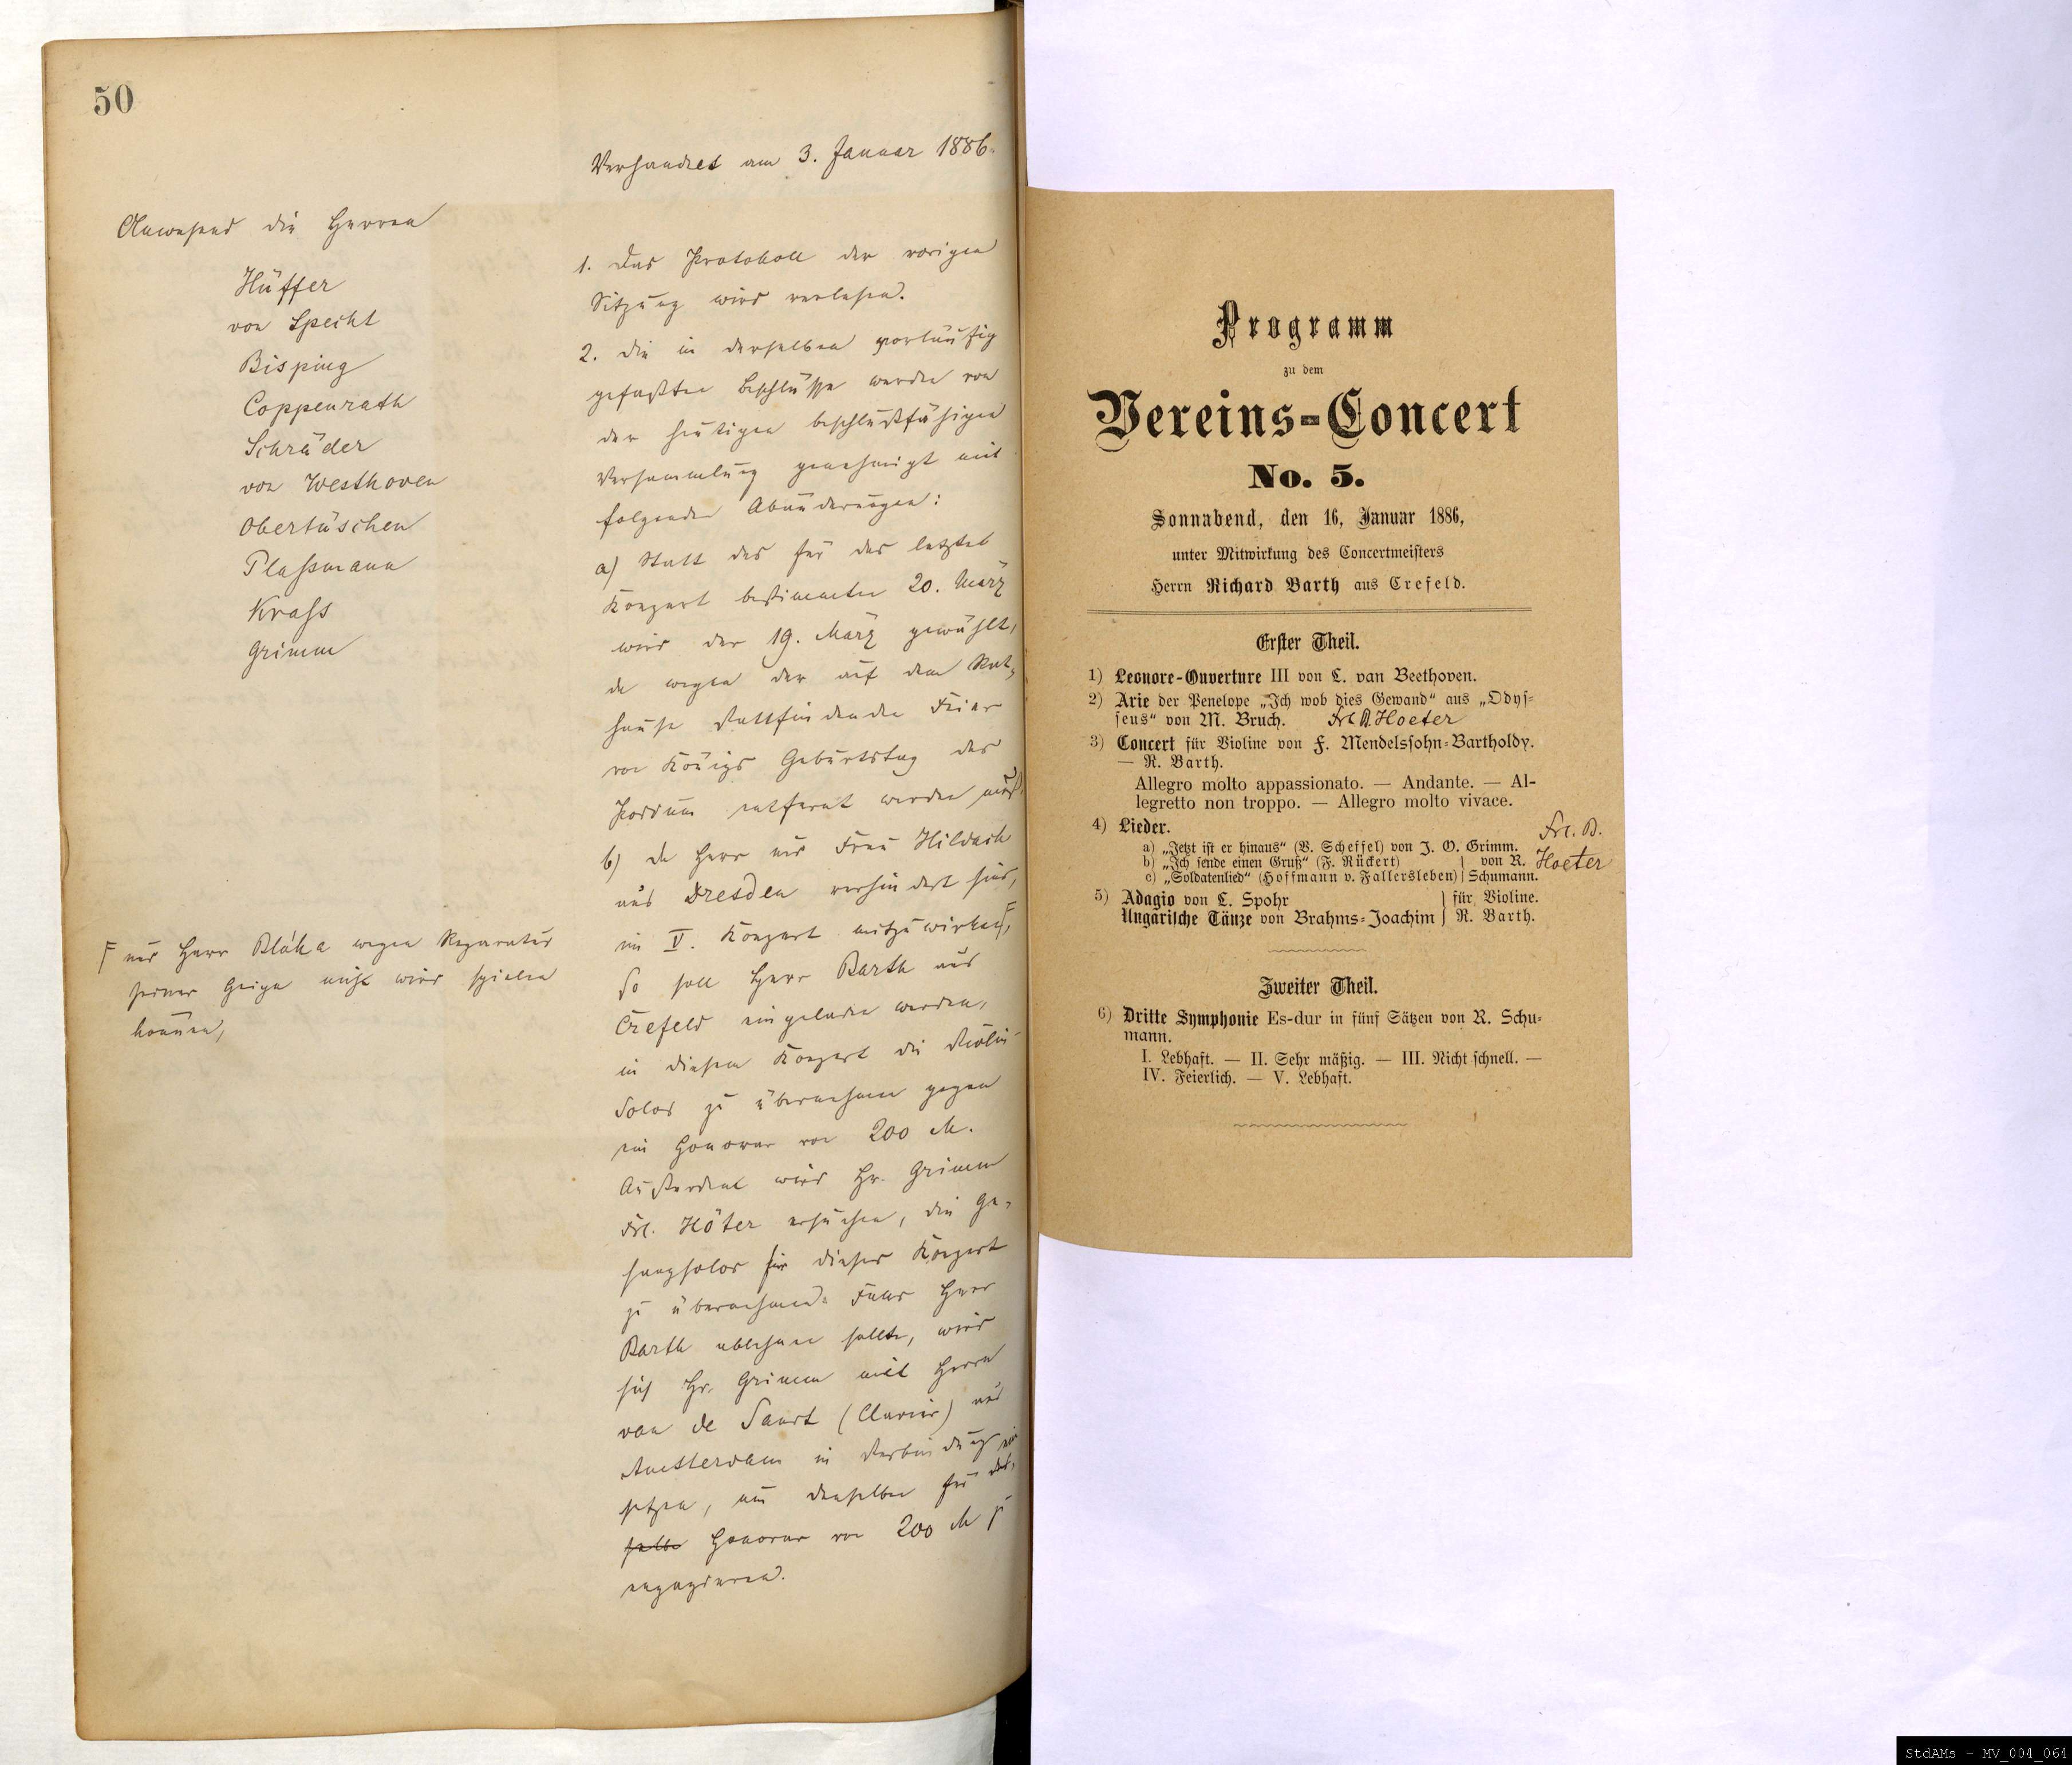 50
Verhandelt am 3. Januar 1886.
Anwesend die Herren
Hüffer
von Specht
Bisping
Coppenrath
Schräder
von Westhoven
Obertüschen
Plaßmann
Kraß
Grimm
1. Das Protokoll der vorigen
Sitzung wird verlesen.
2. Die in derselben vorläufig
gefaßten Beschlüsse werden von
der heutigen beschlußfähigen
Versammlung genehmigt mit
folgenden Abänderungen:
a) Statt des für das letzte
Konzert bestimmten 20. März
wird der 19. März gewählt,
da wegen der auf dem Rat-
hause stattfindenden Feier
von Königs Geburtstag das
Podium entfernt werden muß.
b) da Herr und Frau Hildach
aus Dresden verhindert sind,
im V. Konzert mitzuwirken,
Γ und Herr Bláha wegen Reparatur
seiner Geige nicht wird spielen
können,
So soll Herr Barth aus
Crefeld eingeladen werden,
in diesem Konzert die Violin-
Solos zu übernehmen gegen
ein Honorar von 200 M.
Außerdem wird Hr. Grimm
Frl. Höter ersuchen, die Ge-
sangsolos für dieses Konzert
zu übernehmen. Falls Herr
Barth ablehnen sollte, wird
sich Hr. Grimm mit Herrn
van de Sandt (Clavier) aus
Amsterdam in Verbindung
setzen, um denselben für
Honorar von 200 M
engagieren.
Programm
zu dem
Vereins-Concert
No. 5.
Sonnabend, den 16, Januar 1886,
unter Mitwirkung des Concertmeisters
Herrn Richard Barth aus Crefeld.
Erster Theil.
1) Leonore-Ouverture III von L. van Beethoven.
2) Arie der Penelope „Ich wob dies Gewand“ aus „Odys-
seus“ von M. Bruch. Frl. B. Hoeter
3) Concert für Violine von F. Mendelssohn-Bartholdy.
— R. Barth.
Allegro molto appassionato. — Andante. — Al-
legretto non troppo. — Allegro molto vivace.
4) Lieder. Frl. B.
a) „Jetzt ist er hinaus“ (V. Scheffel) von J. O. Grimm.
b) „Ich sende einen Gruß“ (F. Rückert) } von R. Hoeter
c) „Soldatenlied“ (Hoffmann v. Fallersleben) } Schumann.
5) Adagio von L. Spohr } für Violine.
Ungarische Tänze von Brahms-Joachim } R. Barth.
Zweiter Theil.
6) Dritte Symphonie Es-dur in fünf Sätzen von R. Schu-
mann.
I. Lebhaft. — II. Sehr mäßig. — III. Nicht schnell. —
IV. Feierlich. — V. Lebhaft.
StdAMs - MV_004_064